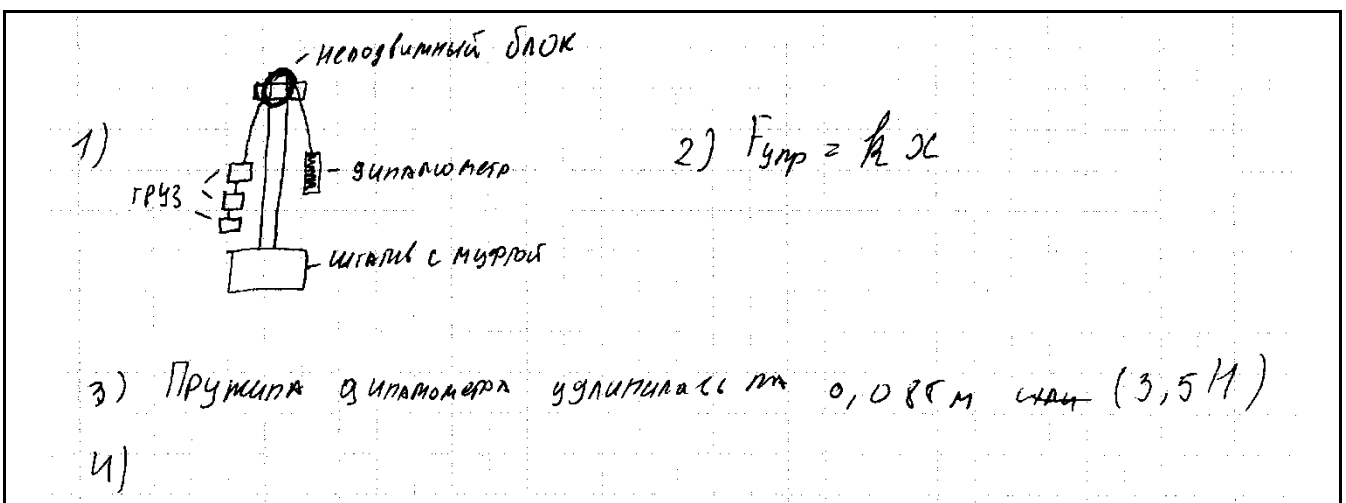 неподвижный блок
1)
динамометр
груз
штатив с муфтой
2) Fупр = k x
3) Пружина динамометра удлинилась на 0,085 м (3,5 Н)
4)